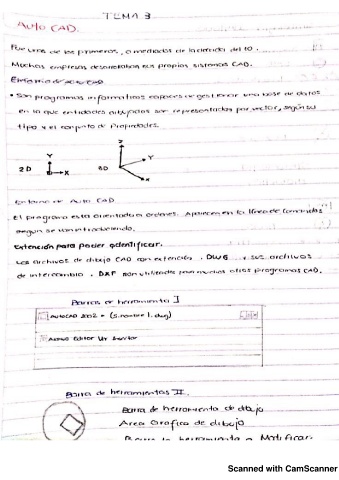 TEMA 3
Auto CAD.
Fue uno de los primeros, a mediados de la decada del 80.
Muchas empresas desarrollaban sus propios sistemas CAD.
• Son programas informaticos capaces de gestionar una base de datos
en la que entidades son representadas por vector, según su
tipo y el conjunto de Propiedades.
Z
Y
2D
X
3D
Y
X
Entorno de Auto CAD
El programa esta orientado a ordenes. Aparecen en la línea de comandos
según se van introduciendo.
Extención para poder identificar.
Los archivos de dibujo CAD con extención .DWG y sus archivos
de intercambio .DXF son utilizados para muchos otros programas CAD.
Barras de herramienta I
AutoCAD 2002 - (sinnombre 1.dwg)
Archivo Editar Ver Insertar
Barra de herramientas II.
Barra de herramienta de dibujo
Area Grafica de dibujo
Barra la herramienta a Modificar.
Scanned with CamScanner